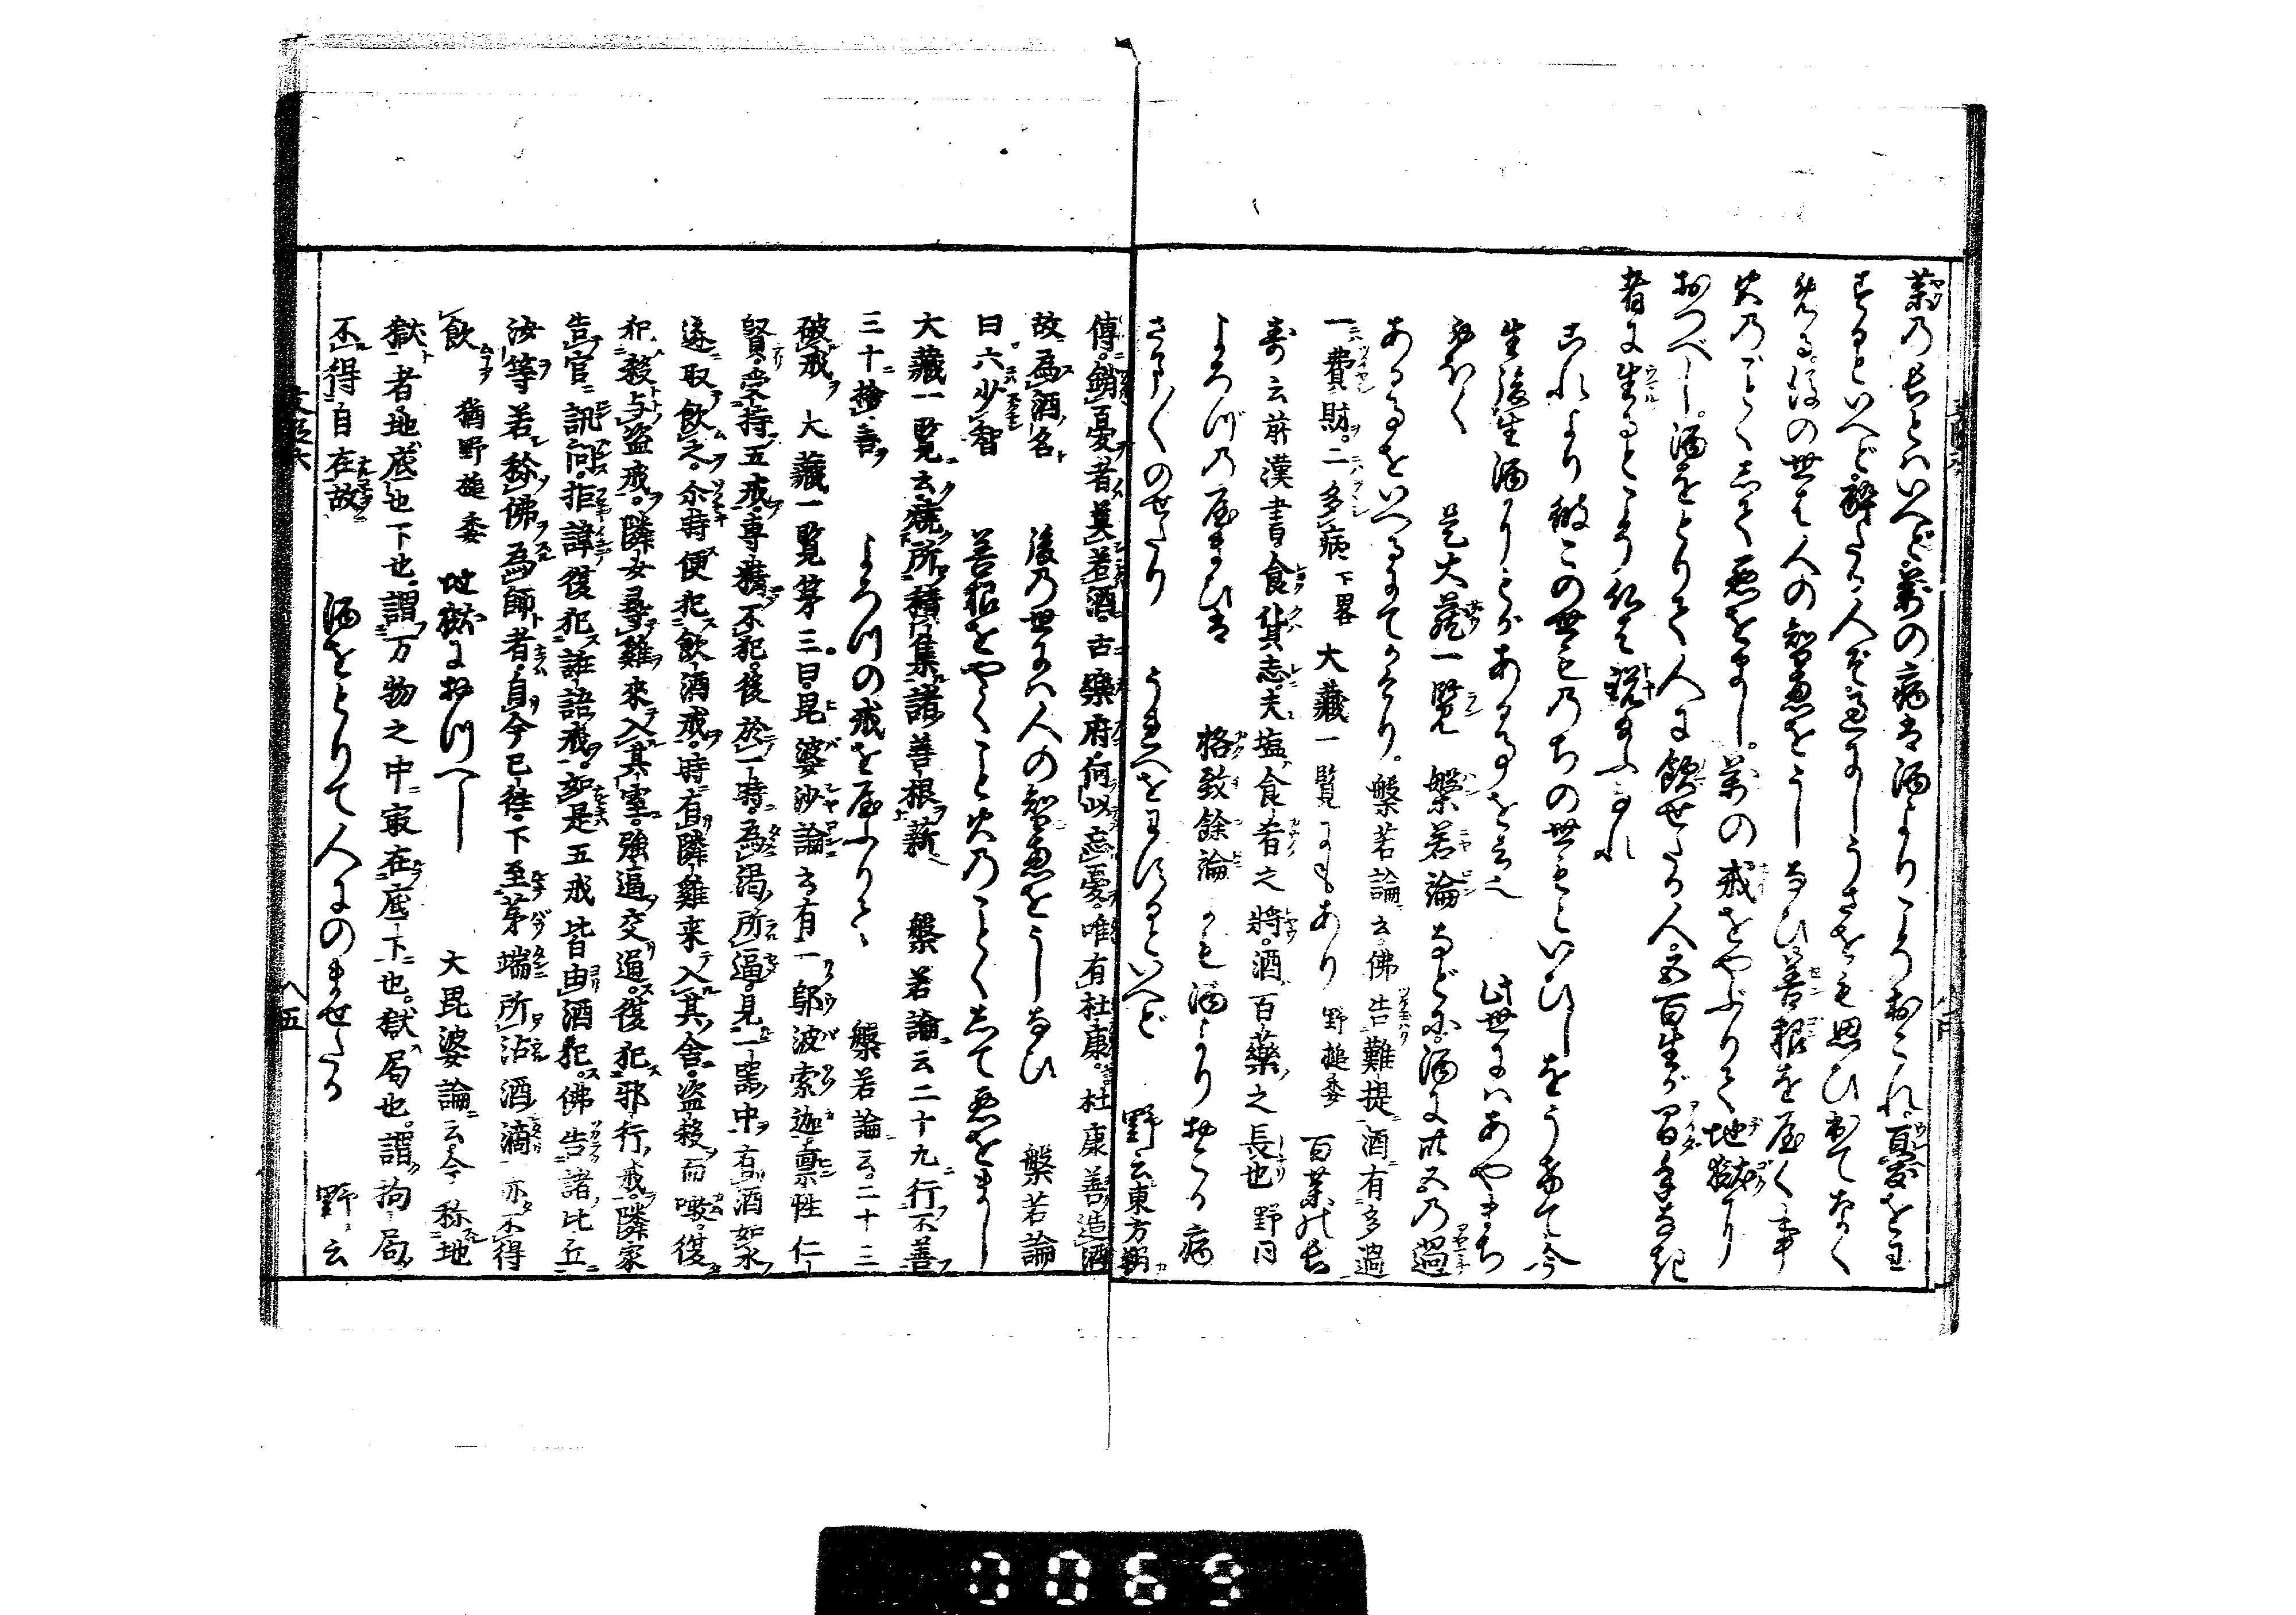 薬乃長とハいへど萬の病は酒よりこそおこれ憂をわ
するといへど酔たる人ぞ過にしうさをも思ひ出てなく
める後の世は人の智恵をうしなひ善根を屋く事
火乃ごとくして悪をまし萬の戒をやぶりて地獄に
おつべし酒をとりて人に飲せたる人五百生が間手なき
者に生るとこそ仏は説給ふなれ
これより後この世乃ちの世といひしをうけて今
生後生酒にとがある事を云也 此世にハあやまち
おほく 是大蔵一覧槃若論などに酒に卅五乃過
あることをいへるにてかけり 槃若論云佛告難提酒有多過
一費財二多病下畧 大蔵一覧にもあり 野槌委 百薬の長
寿云前漢書食貨志夫塩食者之將酒百藥之長也 野同
よろづ乃屋まひは 格致餘論にも酒よりおこる病
さま〱のせたり うれへをわするといへど 野云東方朔
傳銷憂者莫若酒古樂府何以忘憂唯有杜康杜康善造酒
故為酒名 後乃世にハ人の智恵をうしなひ 槃若論
曰六少智 善根をやくこと火乃ことくして悪をまし
大藏一覧云燒所積集諸善根薪 槃若論云二十九行不善
三十捨善 よろづの戒を屋ふりて 槃若論云二十三
破戒 大藏一覧第三曰毘婆沙論云有一鄔波索迦稟性仁
賢受持五戒專精不犯後於一時為渇所逼見一噐中有酒如水
遂取飲之尓時便犯飲酒戒時有隣雞来入其舎盗殺而噉復
犯殺与盗戒隣女尋雞来入其室強逼交通復犯邪行戒隣家
告官訊問拒諱復犯誑語戒如是五戒皆由酒犯佛告諸比丘
汝等若称佛為師者自今已往下至茅端所沾酒滴亦不得
飲 猶野槌委 地獄におつへし 大毘婆論云今称地
獄者地底也下也謂万物之中最在底下也獄局也謂拘局
不得自在故 酒をとりて人にのませたる 野云
八五